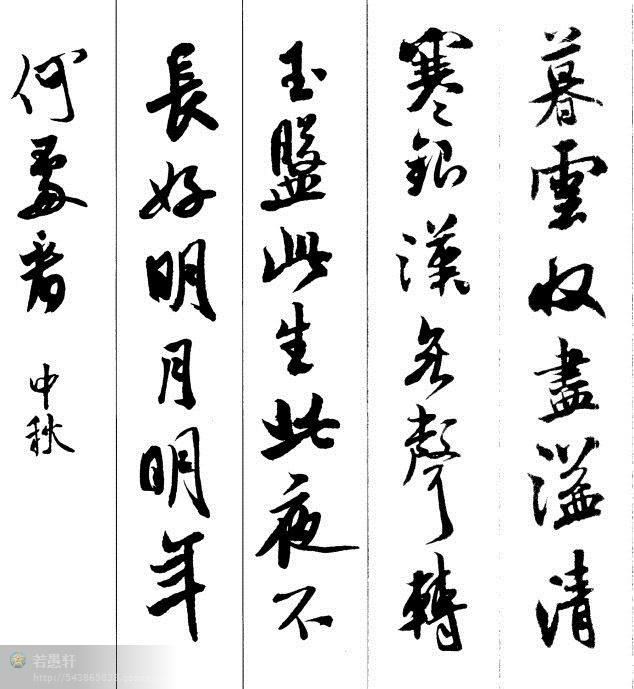 暮雲收盡溢清
寒銀漢無聲轉
玉盤此生此夜不
長好明月明年
何處看
中秋
若愚轩